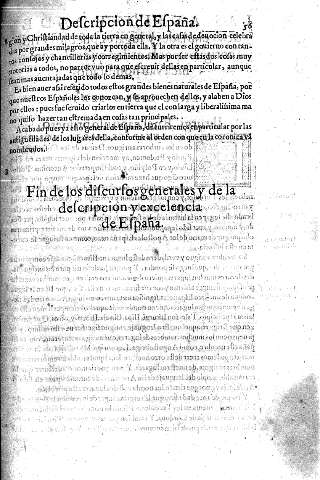 Descripcion de España. 36
gion y Christiandad de toda la tierra en general, y las casas de deuocion celebra
das por grandes milagros, que ay por toda ella. Y la otra es el gouierno con tan-
tos consejos y chancillerias y corregimientos: Mas por ser estas dos cosas muy
notorias a todos, no parecio que para que escreuir dellas en particular, aunque
sean mas auentajadas que todo lo demas.
Es bien auer assi referido todos estos grandes bienes naturales de España, por
que nuestros Españoles los conozcan, y se aprouechen dellos, y alaben a Dios
por ellos: pues fue seruido criarlos en tierra que el con larga y liberalissima ma
no quiso hazer tan estremada en cosas tan principales.
Acabado pues ya esto general de España, de
antiguedades de los lugares della, conforme al orden con que la coronica va
Fin de los discursos generales y de la
descripcion y excelencia
de España.